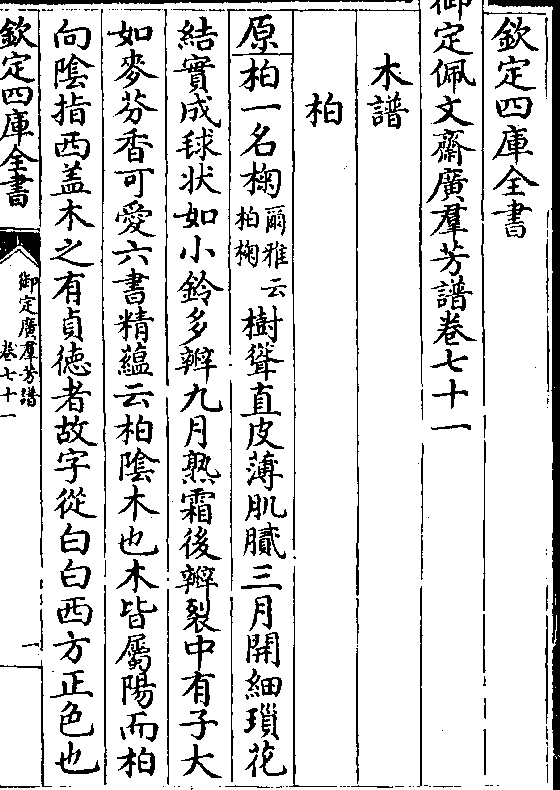 欽定四庫全書
御定佩文齋廣羣芳譜卷七十一
木譜
柏
原柏一名椈爾雅云柏椈樹聳直皮薄肌膩三月開細瑣花
結實成毬狀如小鈴多瓣九月熟霜後瓣裂中有子大
如麥芬香可愛六書精蘊云柏陰木也木皆屬陽而柏
向陰指西蓋木之有貞德者故字從白白西方正色也
欽定四庫全書
御定廣羣芳譜
卷七十一
一